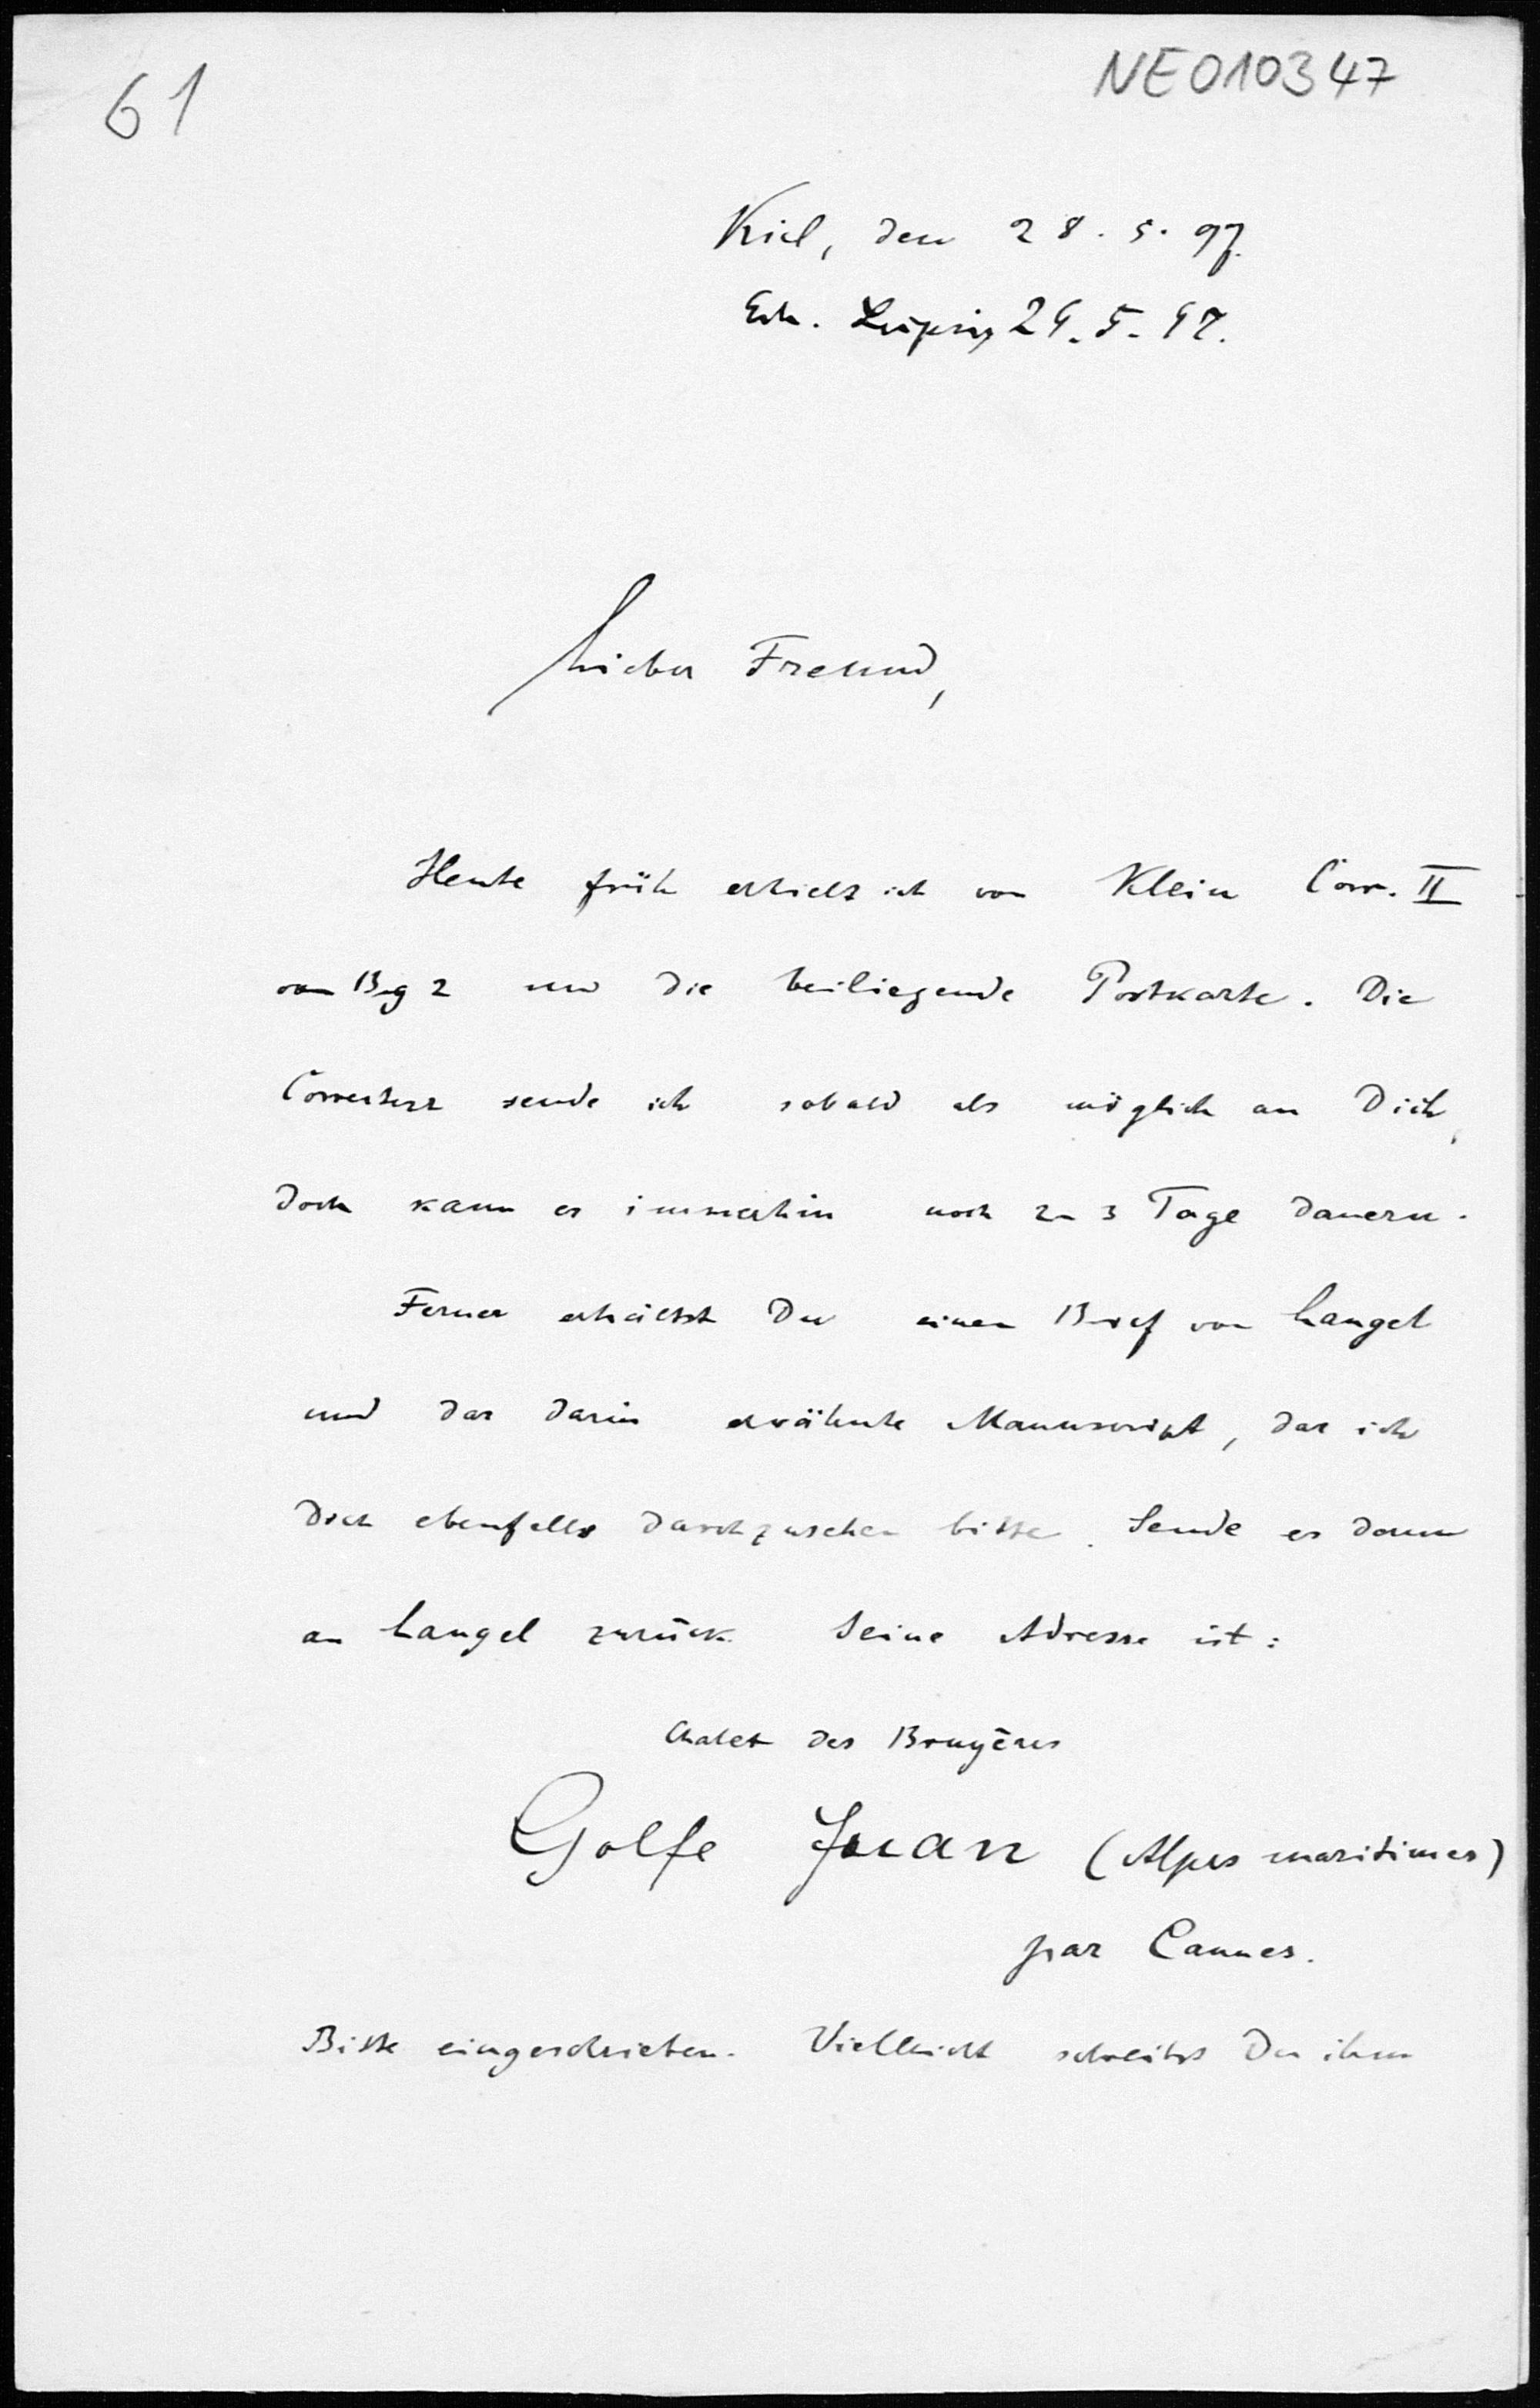 61
NE010347
Kiel, den 28. 5. 97.
Erh. Leipzig 29. 5. 97.
Lieber Freund,
Heute früh erhielt ich von Klein Corr. II
von Bog 2 und die beiliegende Postkarte. Die
Correctur sende ich sobald als möglich an Dich,
doch kann es immerhin noch 2-3 Tage dauern.
Ferner erhältst Du einen Brief von Laugel
und das darin erwähnte Manuscript, das ich
Dich ebenfalls durchzusehen bitte. Sende es dann
an Laugel zurück. Seine Adresse ist:
Chalet des Bruyères
Golfe Juan (Alpes maritimes)
par Cannes.
Bitte eingeschrieben. Vielleicht schreibst Du ihm